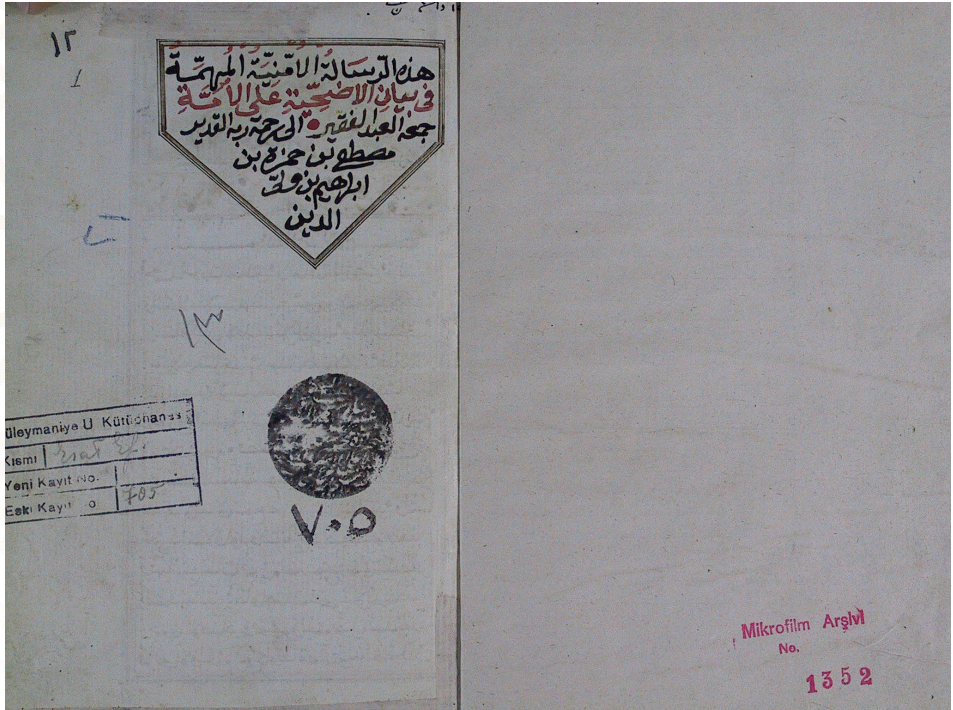 ١٢
1
هذه الرّسَالة الامْنِيّة المُهِمَّة
فى بيان الاضحِيّةِ عَلى الأمَّةِ
جمعه العبد الفقير الى رحمة ربه القدير
مصطفى بن حمزة بن
ابراهيم بن ولىّ
الدين
١٣
üleymaniye U Kütüphanesi
Kısmı Esat Ef.
Yeni Kayıt No.
Eski Kayıt No 705
٧٠٥
Mikrofilm Arşivi
No.
1352